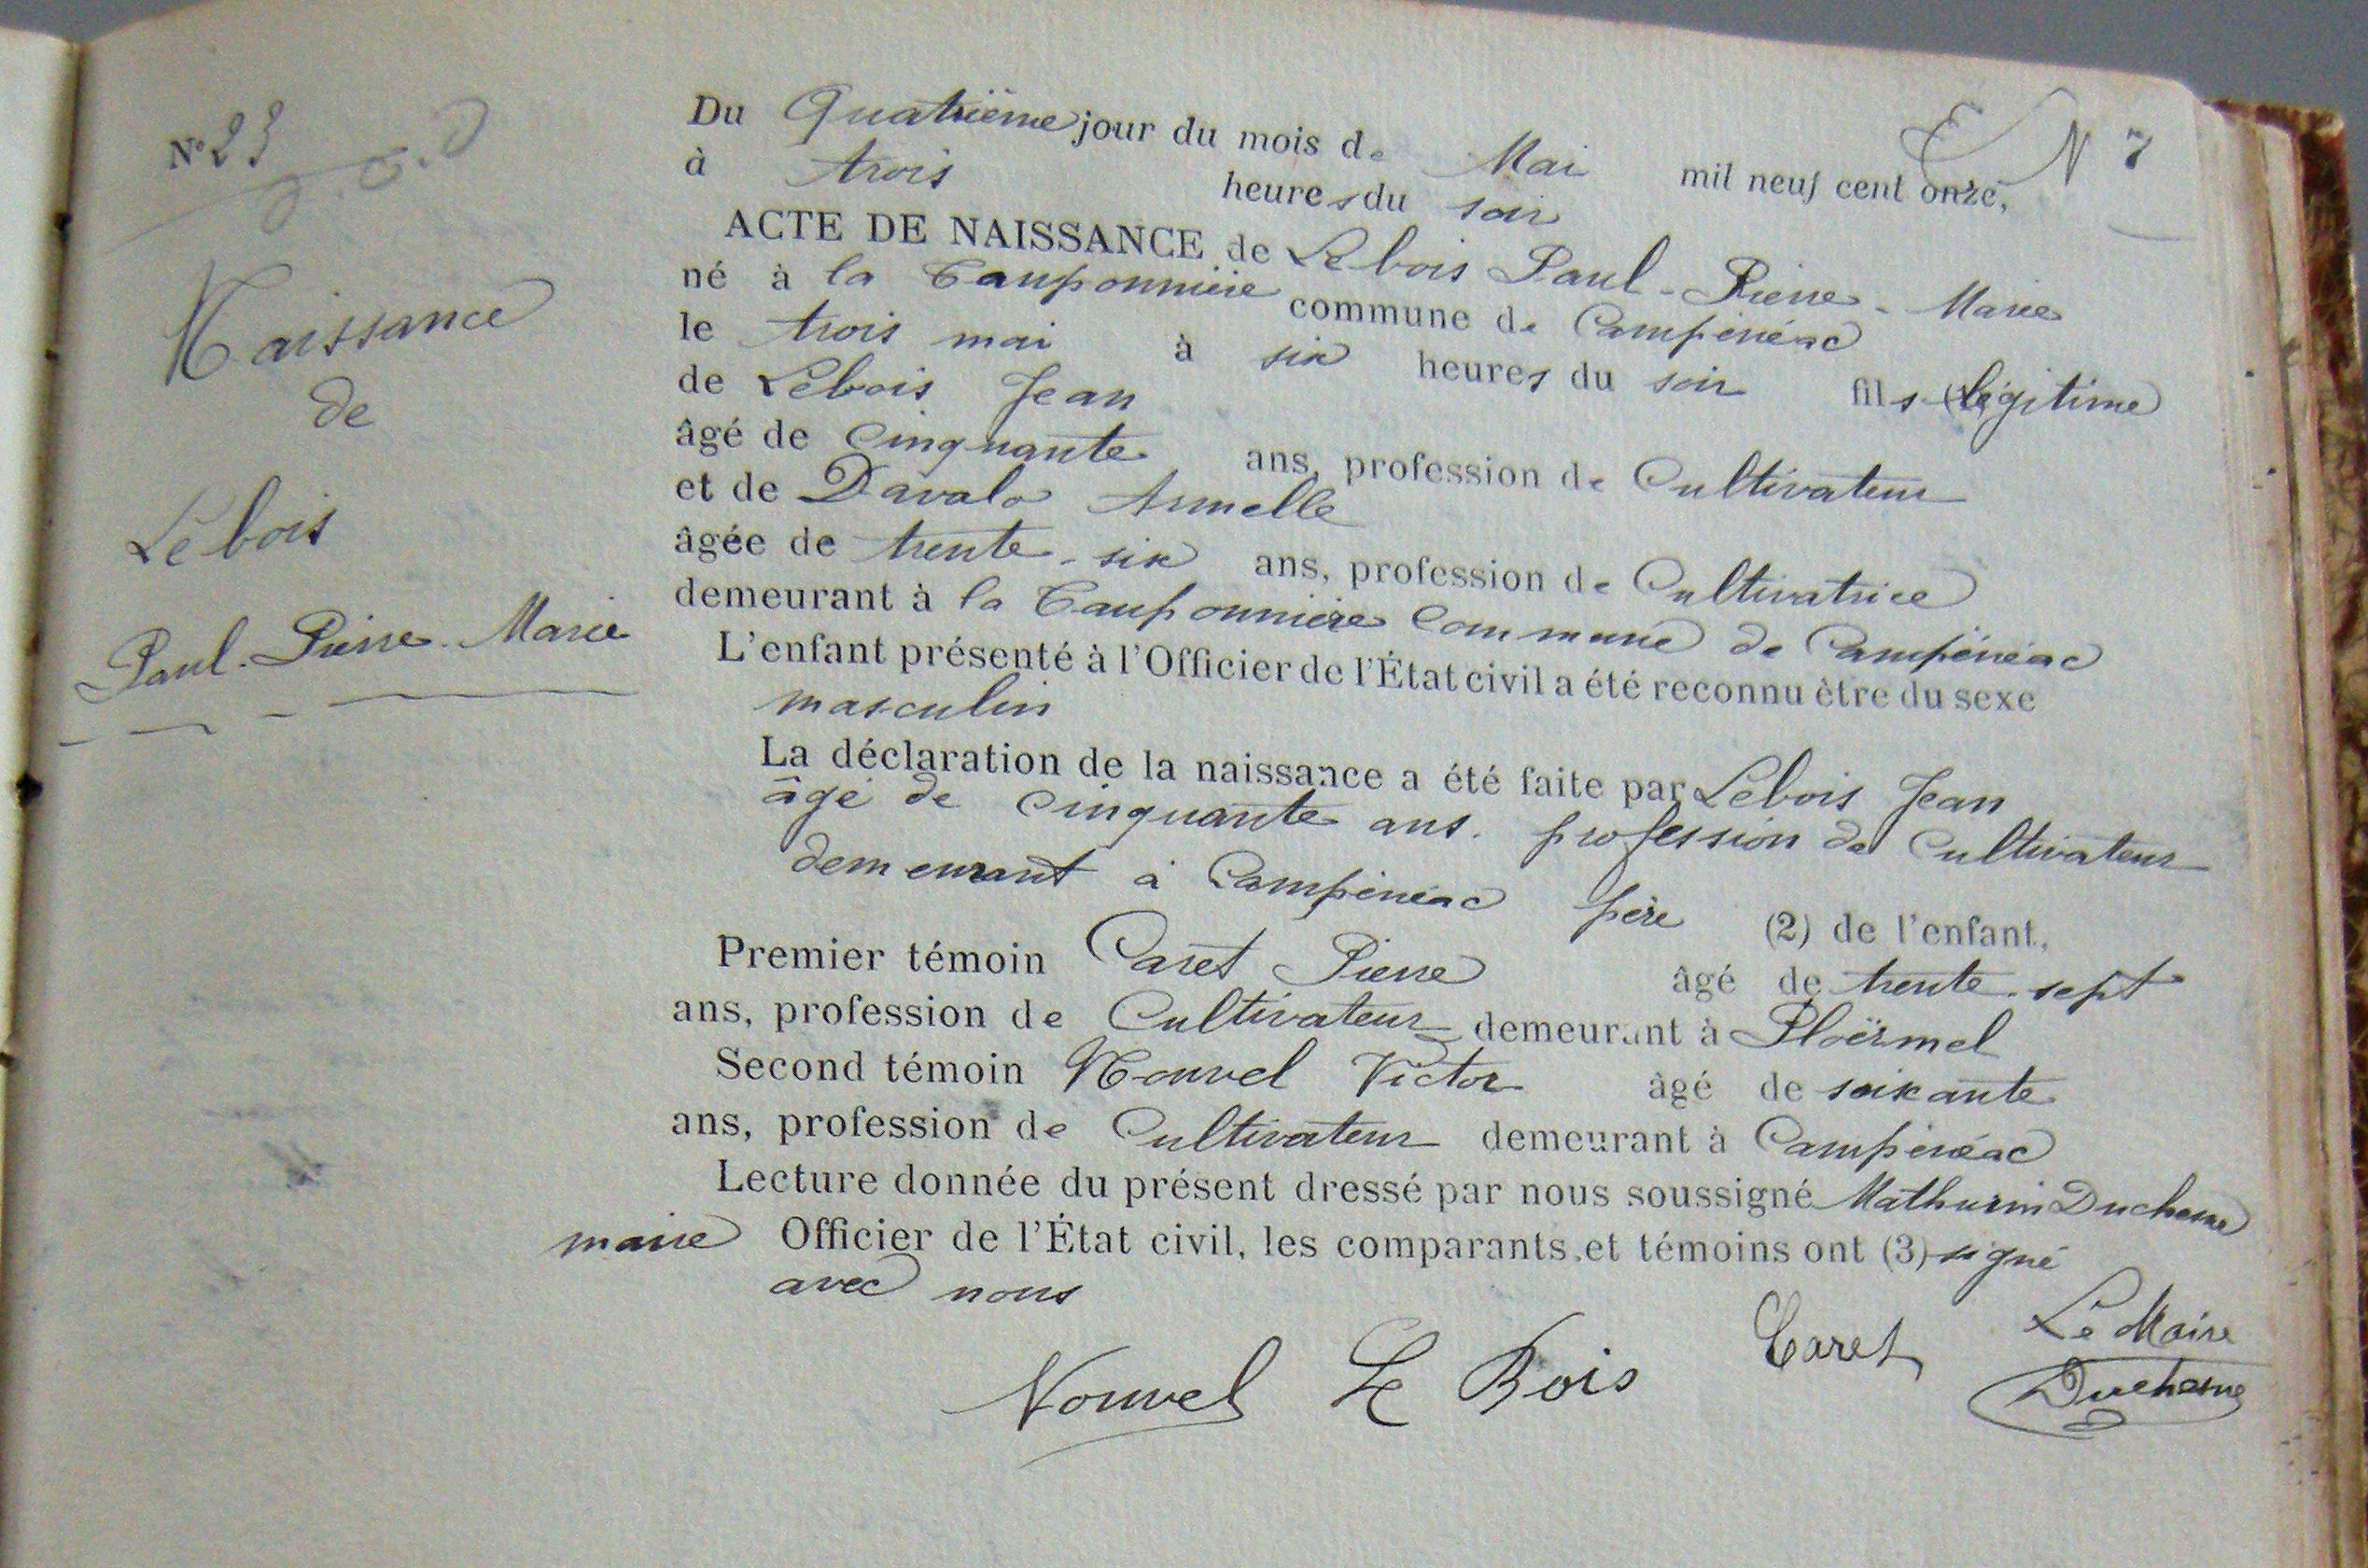 N° 23
Naissance
de
Lebois
Paul-Pierre-Marie
N 7
Du Quatrième jour du mois de Mai mil neuf cent onze,
à trois heures du soir
ACTE DE NAISSANCE de Lebois Paul-Pierre-Marie
né à la Tauponnière commune de Campénéac
le trois mai à six heures du soir fils légitime
de Lebois Jean
âgé de cinquante ans, profession de Cultivateur
et de Davalo Armelle
âgée de trente-six ans, profession de Cultivatrice
demeurant à la Tauponnière commune de Campénéac
L'enfant présenté à l'Officier de l'État civil a été reconnu être du sexe
masculin
La déclaration de la naissance a été faite par Lebois Jean
âgé de cinquante ans. profession de Cultivateur
demeurant à Campénéac père (2) de l'enfant,
Premier témoin Caret Pierre âgé de trente-sept
ans, profession de Cultivateur demeurant à Ploërmel
Second témoin Nouvel Victor âgé de soixante
ans, profession de Cultivateur demeurant à Campénéac
Lecture donnée du présent dressé par nous soussigné Mathurin Duchesne
maire Officier de l'État civil, les comparants et témoins ont (3) signé
avec nous
Nouvel Le Bois Caret Le Maire
Duchesne